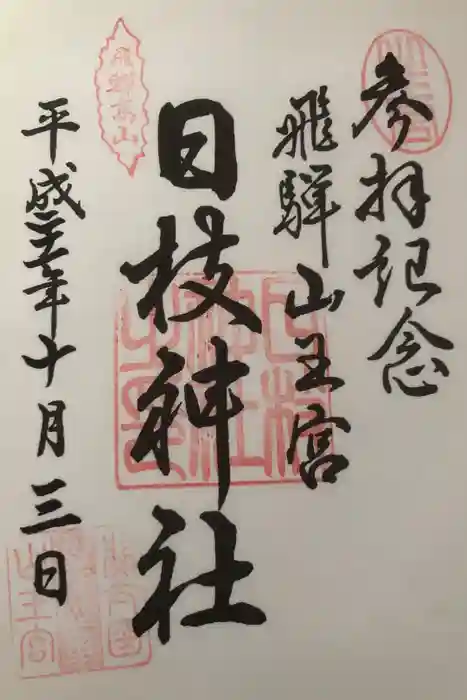 参拝記念
飛騨山王宮
日枝神社
平成二十一年十月三日
飛騨高山
日枝神社
山王宮